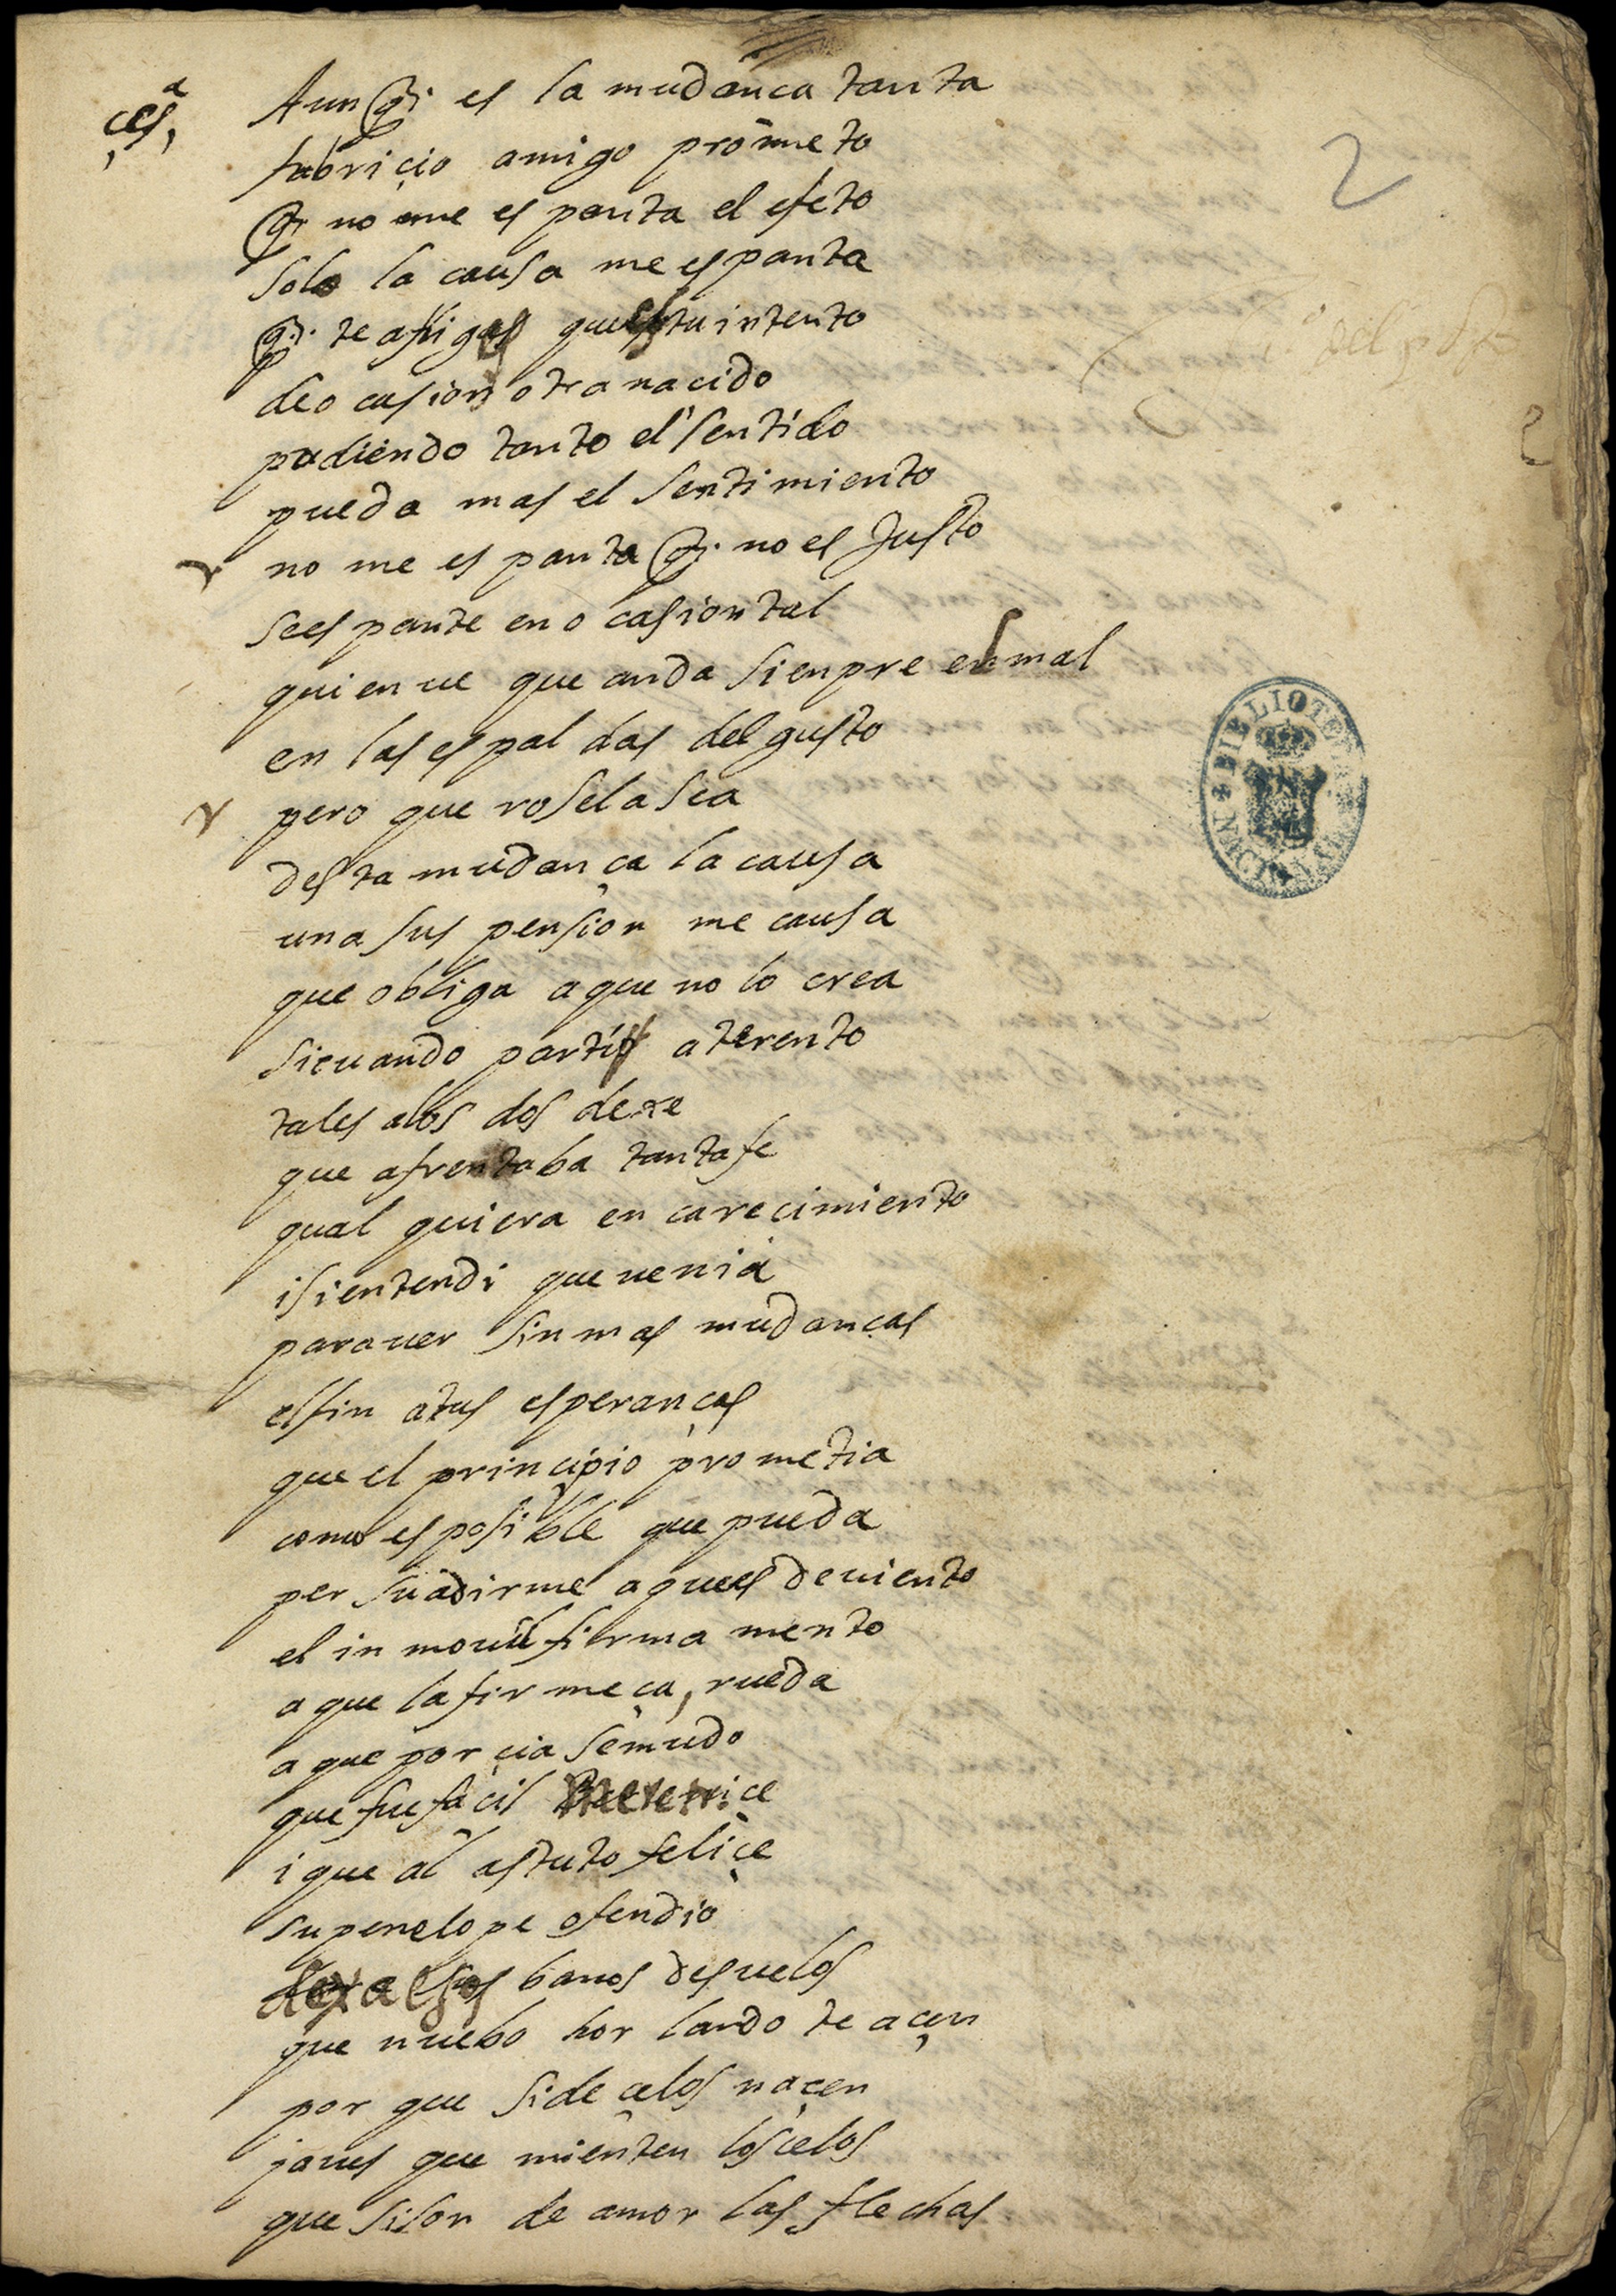 çesª
2
Aunq. es la mudança tanta
fabriçio amigo prometo
q. no me espanta el efeto
solo la causa me espanta
q. te afligas que es tu intento
de ocasion otra nacido
pudiendo tanto el sentido
pueda mas el sentimiento
no me espanta q. no es Justo
se espante en ocasion tal
quien ue que anda sienpre el mal
en las espaldas del gusto
pero que rosela sea
desta mudança la causa
una suspension me causa
que obliga a que no lo crea
si cuando parti a terento
tales a los dos dexe
que afrentaba tanta fe
qual quiera encarecimiento
i si entendi que uenia
para uer sin mas mudanças
el fin a tus esperanças
que el prinçipio prometia
como es posible que pueda
persuadirme a que es de uiento
el inmouil firmamento
a que la firmeça, rueda
a que porçia se mudo
que fue façil
i que al astuto feliçe
su penelope ofendio
dexa esos banos desuelos
que nuebo horlando te açen
por que si de çelos naçen
ja ues que mienten los çelos
que si son de amor las flechas
BIBLIOTECA NACIONAL